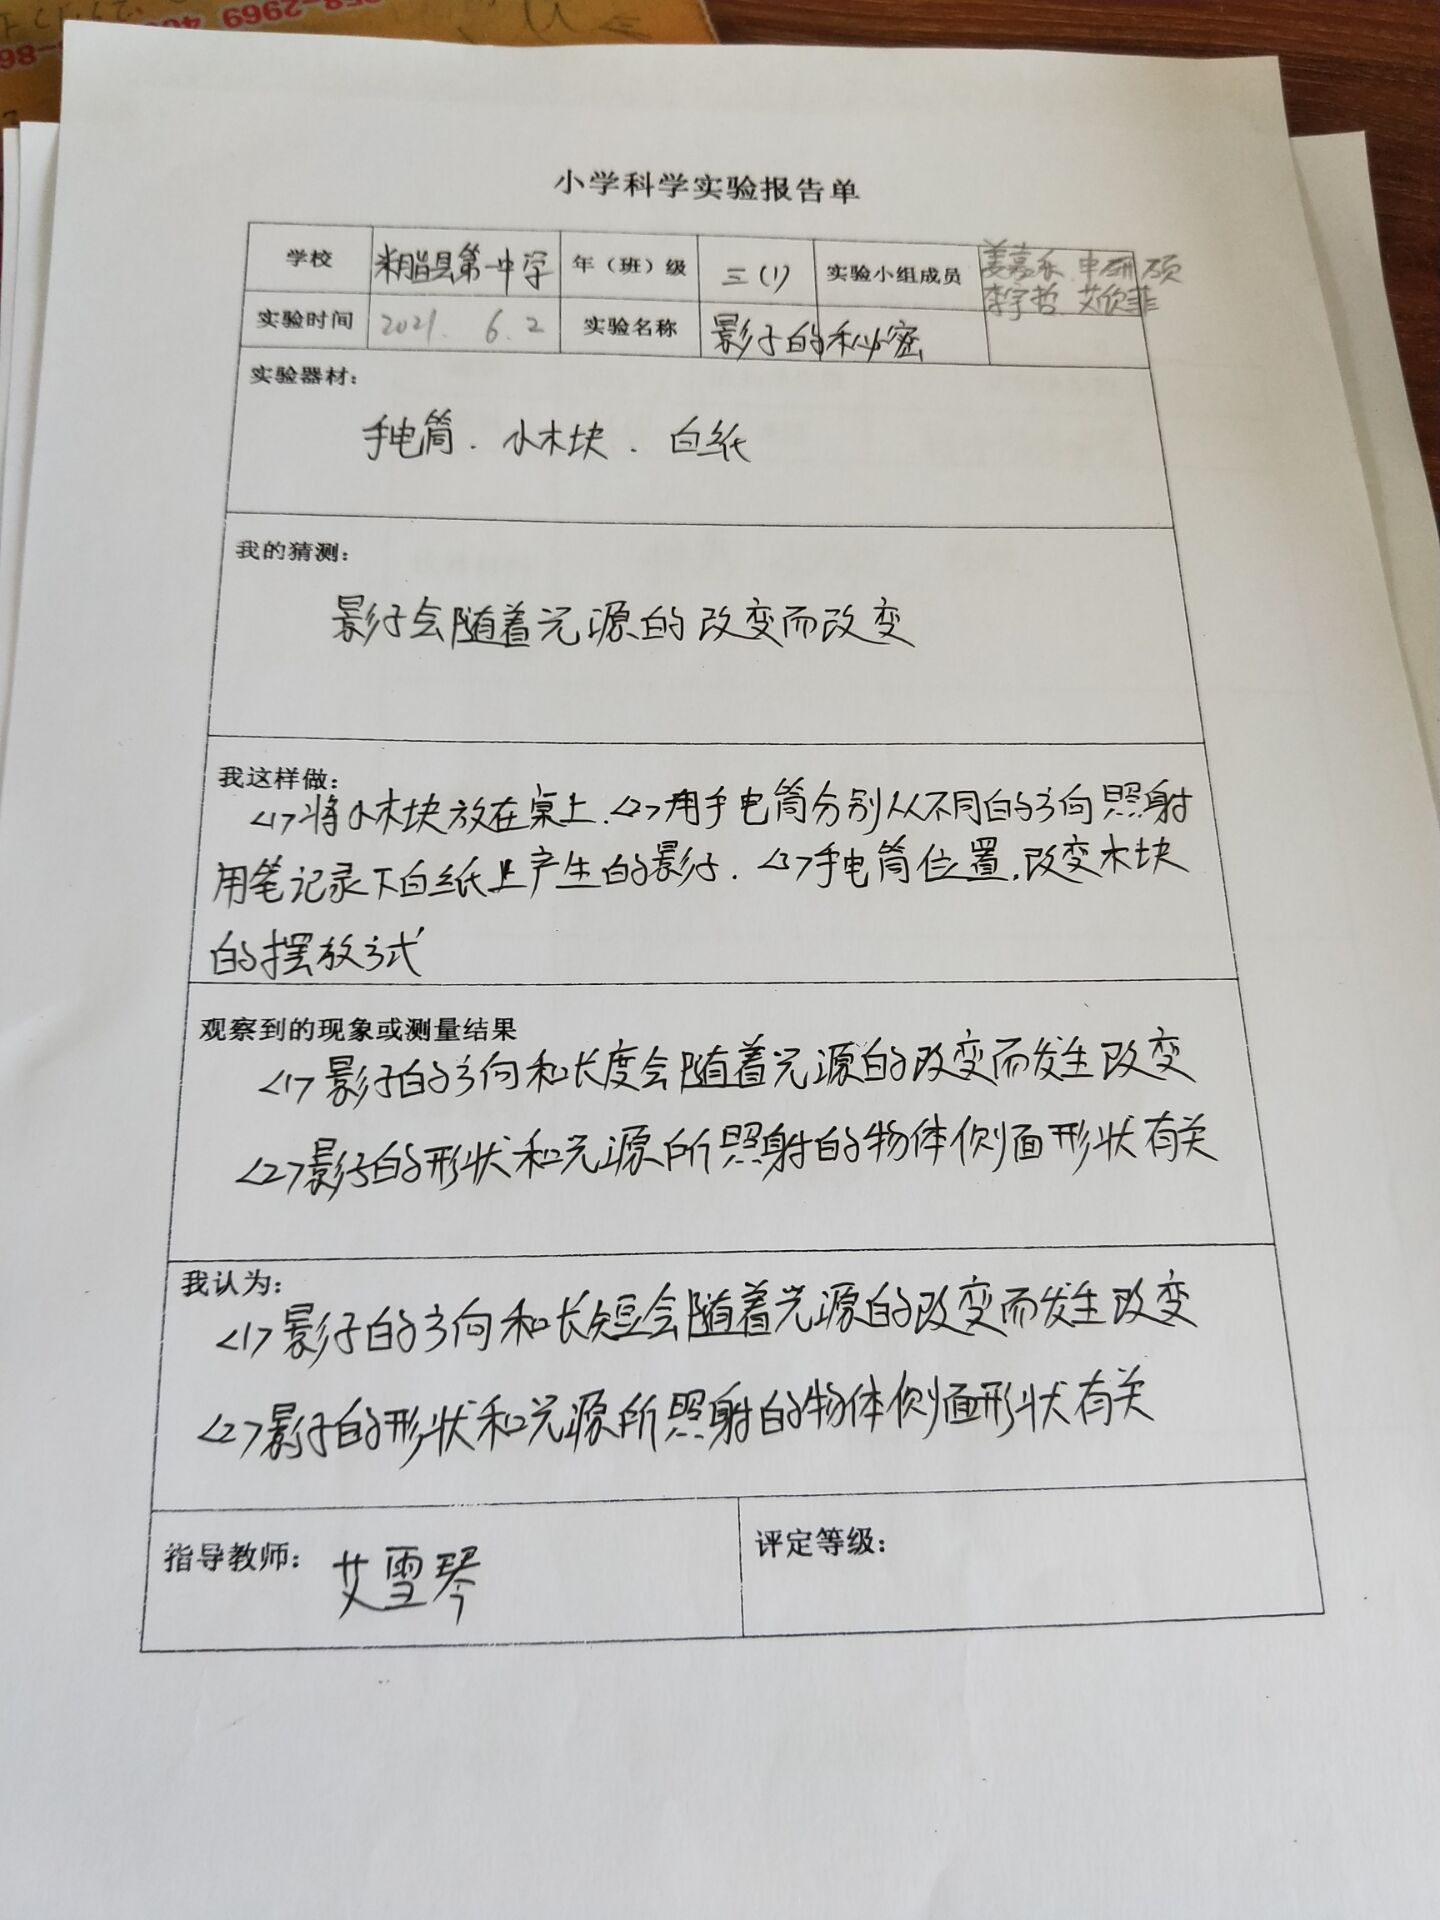 小学科学实验报告单
学校 米脂县第一中学 年（班）级 三(1) 实验小组成员 姜嘉乐 申研硕
李宇哲 艾欣菲
实验时间 2021. 6.2 实验名称 影子的秘密
实验器材：
手电筒. 小木块. 白纸
我的猜测：
影子会随着光源的改变而改变
我这样做：
<1>将小木块放在桌上.<2>用手电筒分别从不同的方向照射
用笔记录下白纸上产生的影子.<3>手电筒位置,改变木块
的摆放方式
观察到的现象或测量结果
<1>影子的方向和长度会随着光源的改变而发生改变
<2>影子的形状和光源所照射的物体侧面形状有关
我认为：
<1>影子的方向和长短会随着光源的改变而发生改变
<2>影子的形状和光源所照射的物体侧面形状有关
指导教师： 艾雪琴 评定等级：